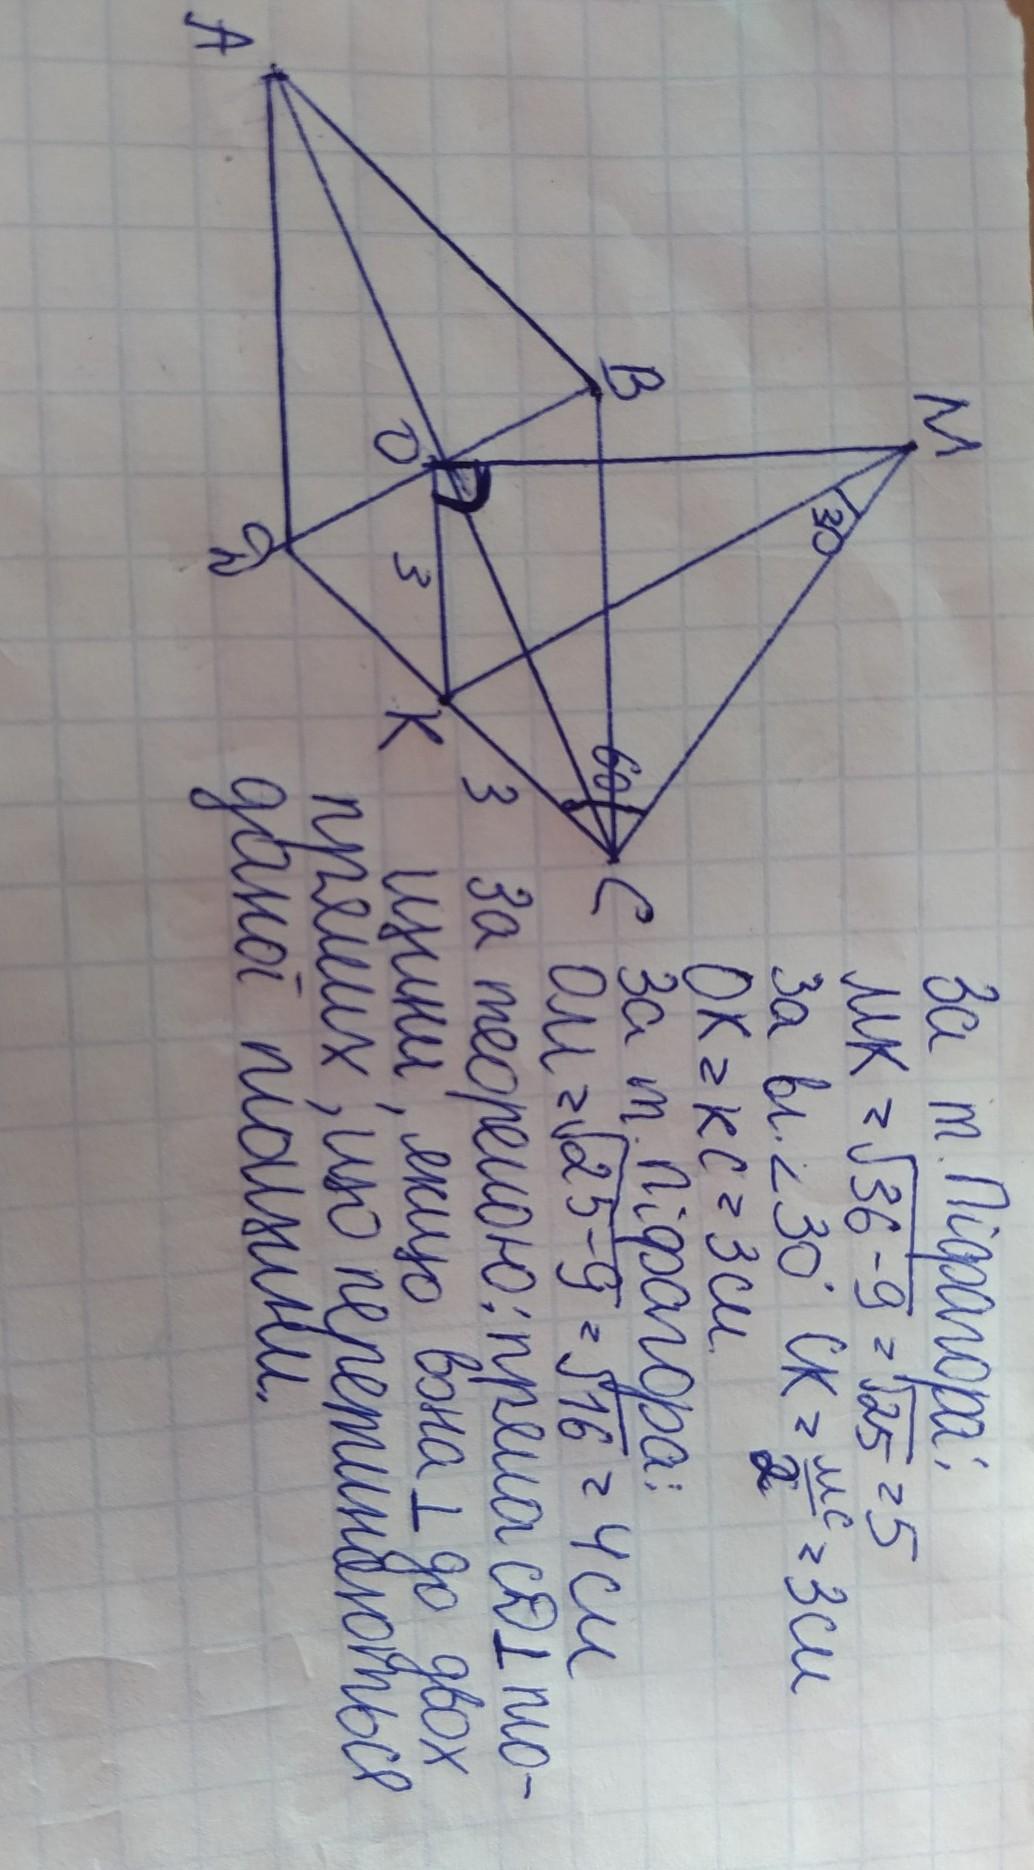 M
B
A
30
60
O
3
C
K
3
D
За т. Піфагора:
MK = √36-9 = √25 = 5
За вл. ∠30° CK = MC/2 = 3см
OK = KC = 3см.
За т. Піфагора:
OM = √25-9 = √16 = 4см
За теоремою: пряма CD ⊥ пло-
щини, якщо вона ⊥ до двох
прямих, що перетинаються
даної площини.